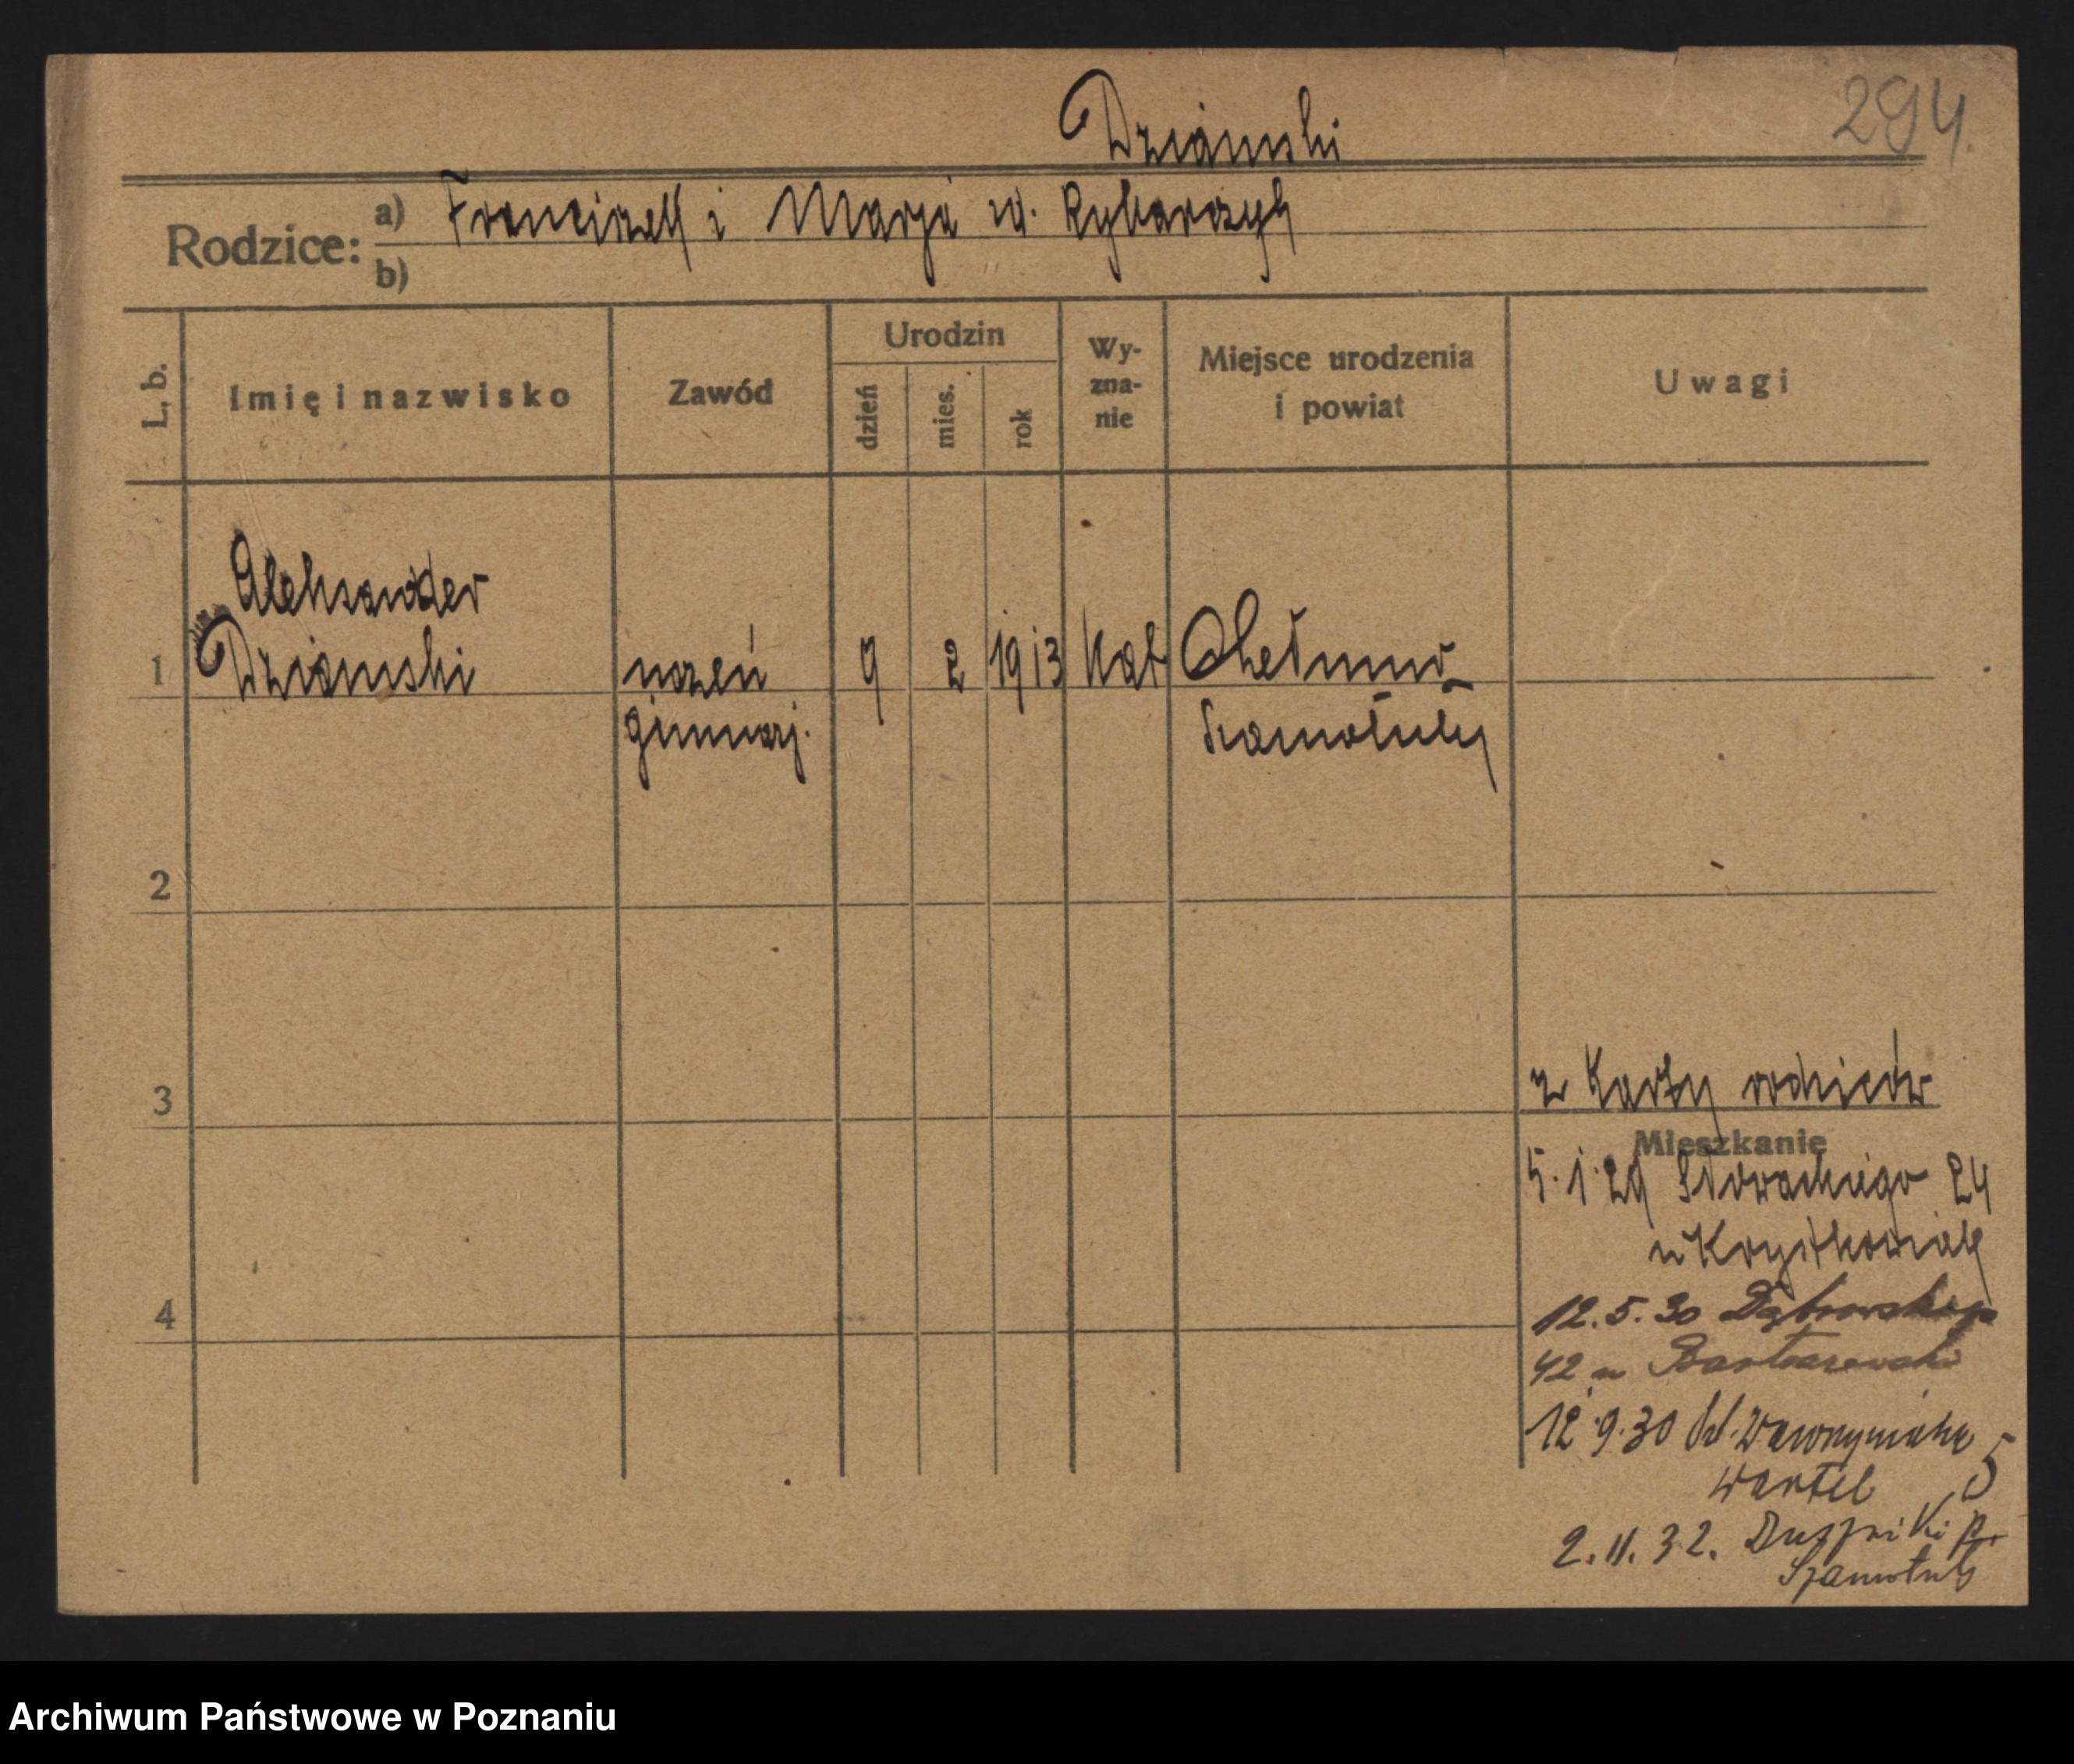 Dziamski
294.
Rodzice: a) Franciszek i Marja ur. Rybarczyk
b)
L. b.
Imię i nazwisko
Zawód
Urodzin
dzień
mies.
rok
Wy-
zna-
nie
Miejsce urodzenia
i powiat
Uwagi
Aleksander
1 Dziamski uczeń 9 2 1913 kat Chełmno
gimnazj. Szamotuły
2
3
z Karty rodziców
Mieszkanie
5.1.29 Słowackiego 24
4
12.5.30 Dąbrowskiego
42 u
12.9.30 Wawrzyniaka 5
Wartel
2.11.32. Duszniki p.
Szamotuły
Archiwum Państwowe w Poznaniu